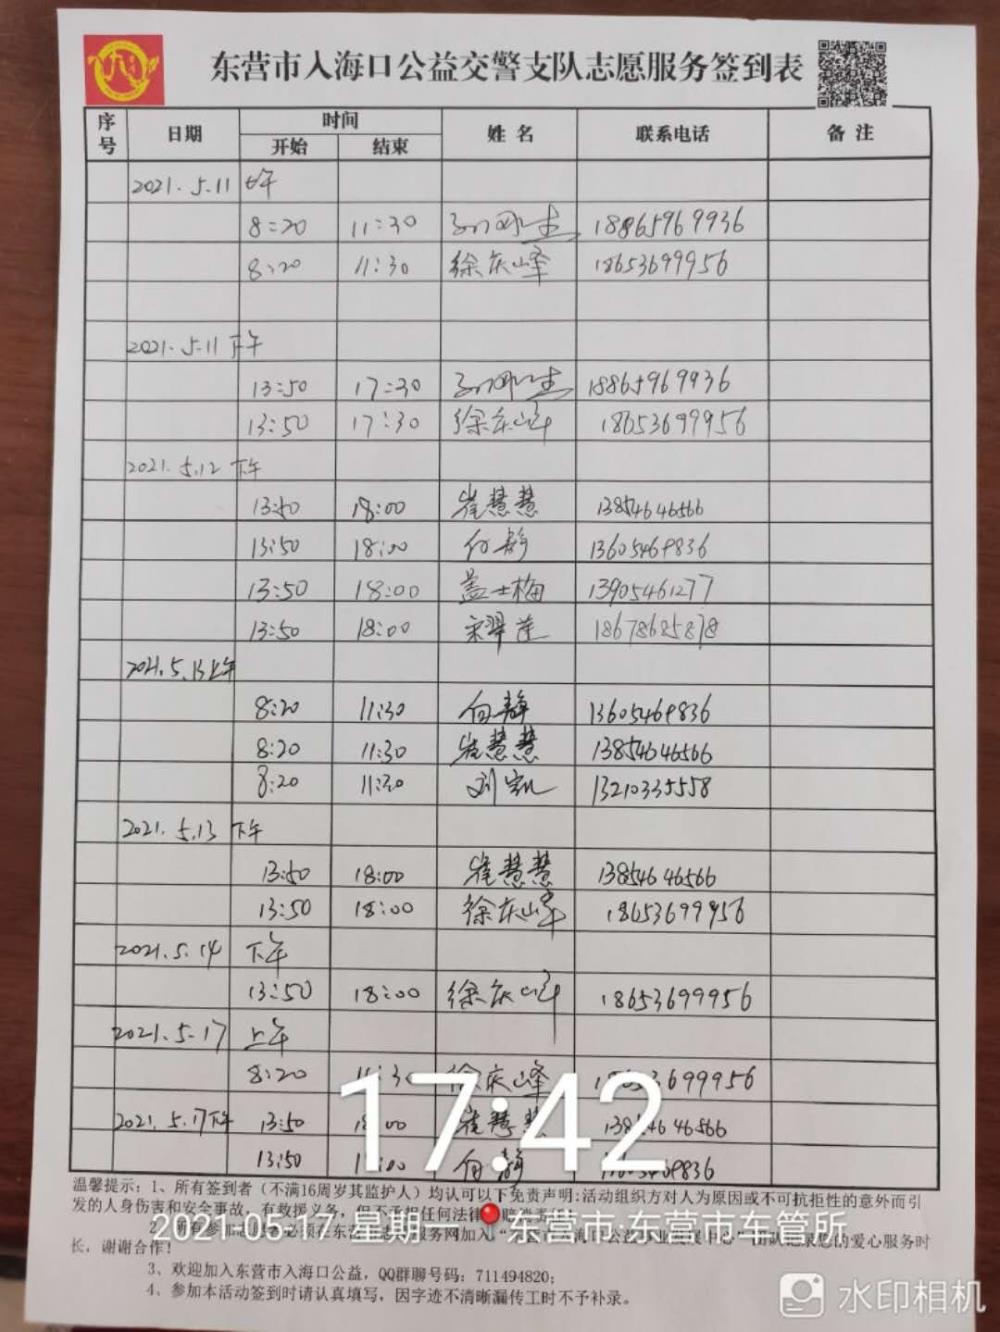 东营市入海口公益交警支队志愿服务签到表
序号 日期 时间 姓名 联系电话 备注
开始 结束
2021.5.11 上午
8:20 11:30 18865969936
8:20 11:30 徐庆峰 18653699956
2021.5.11 下午
13:50 17:30 18865969936
13:50 17:30 徐庆峰 18653699956
2021.5.12 下午
13:50 18:00 崔慧慧 13854646566
13:50 18:00 向静 13605469836
13:50 18:00 盖士梅 13905461277
13:50 18:00 宋翠莲 18678625878
2021.5.13上午
8:20 11:30 向静 13605469836
8:20 11:30 崔慧慧 13854646566
8:20 11:30 刘凯 13210335558
2021.5.13 下午
13:50 18:00 崔慧慧 13854646566
13:50 18:00 徐庆峰 18653699956
2021.5.14 下午
13:50 18:00 徐庆峰 18653699956
2021.5.17 上午
8:20 11:30 徐庆峰 18653699956
2021.5.17下午 13:50 18:00 崔慧慧 13854646566
13:50 18:00 向静 13605469836
17:42
温馨提示：1、所有签到者（不满16周岁其监护人）均认可以下免责声明：活动组织方对人为原因或不可抗拒性的意外而引
发的人身伤害和安全事故，有救援义务，但不承担任何法律
2021-05-17 星期一 东营市·东营市车管所
长，谢谢合作！
3、欢迎加入东营市入海口公益，QQ群聊号码：711494820；
4、参加本活动签到时请认真填写，因字迹不清晰漏传工时不予补录。
水印相机